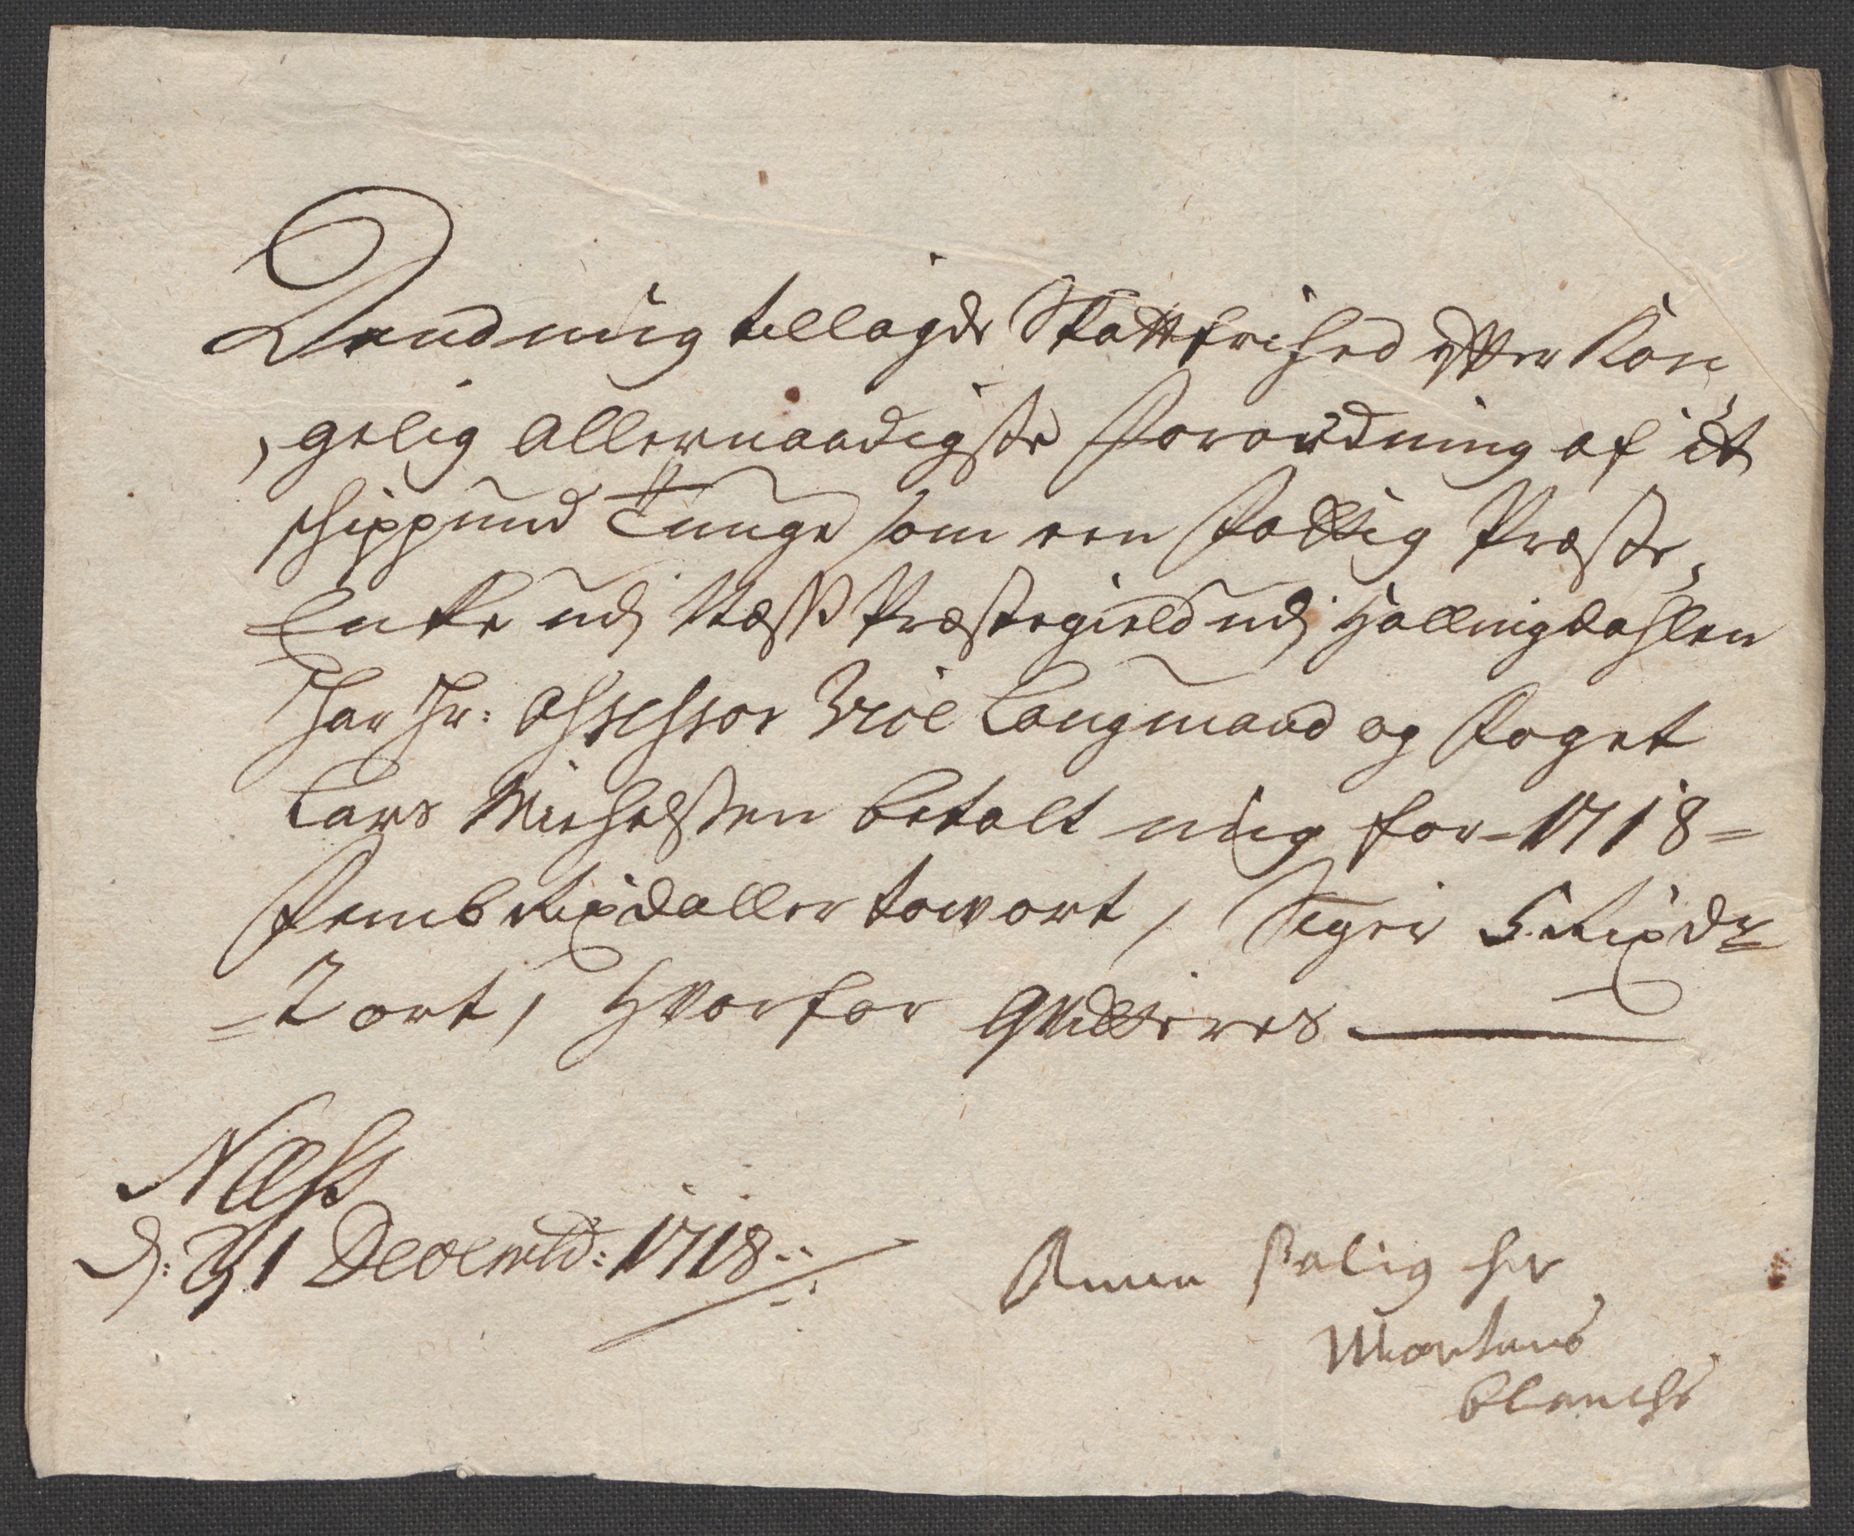 Dend mig tillagde Skattfrihed efter Kon,
,gelig Allernaadigste Forordning af it
schippund Tunge som een Fattig Præste,
Encke udj Næss Præstegield udj Hallingdahlen
Har Hr: Assessor Vice Laugmand og Foget
Lars Michelssen betalt mig for - 1718 =
Femb Rixdaller tow ort, Siger 5 Rixdr
= 2 ort, Hvorfor Qvitteres
Næss
d: 31 Decembr: 1718
Salig her
Mortens
blenchs